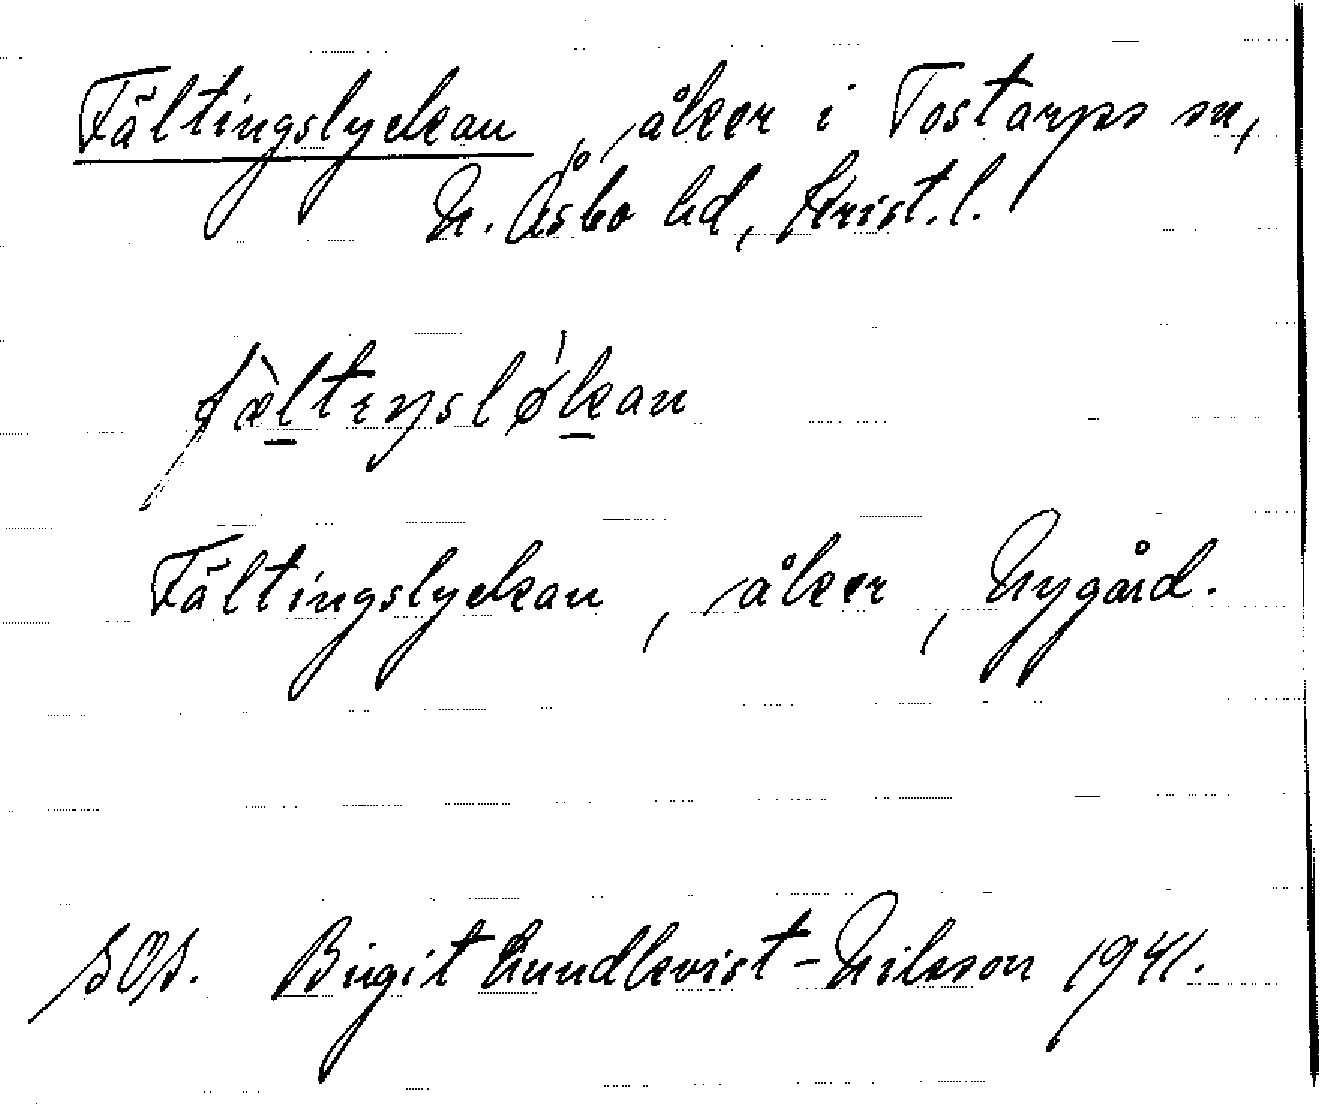 Fältingslyckan, åker i Tostarps sn,
N. Åsbo hd, Krist. l.
fæ̀ltıŋslø̍kan
Fältingslyckan, åker, Nygård.
SOS. Birgit Lundkvist-Nilsson 1941.